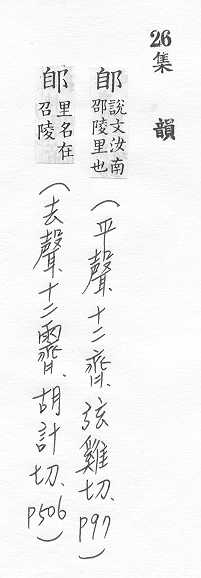 26 集 韻
郋 說文汝南邵陵里也 (平聲、十二齊、弦雞切、p97)
郋 里名在召陵 (去聲、十二霽、胡計切、p506)